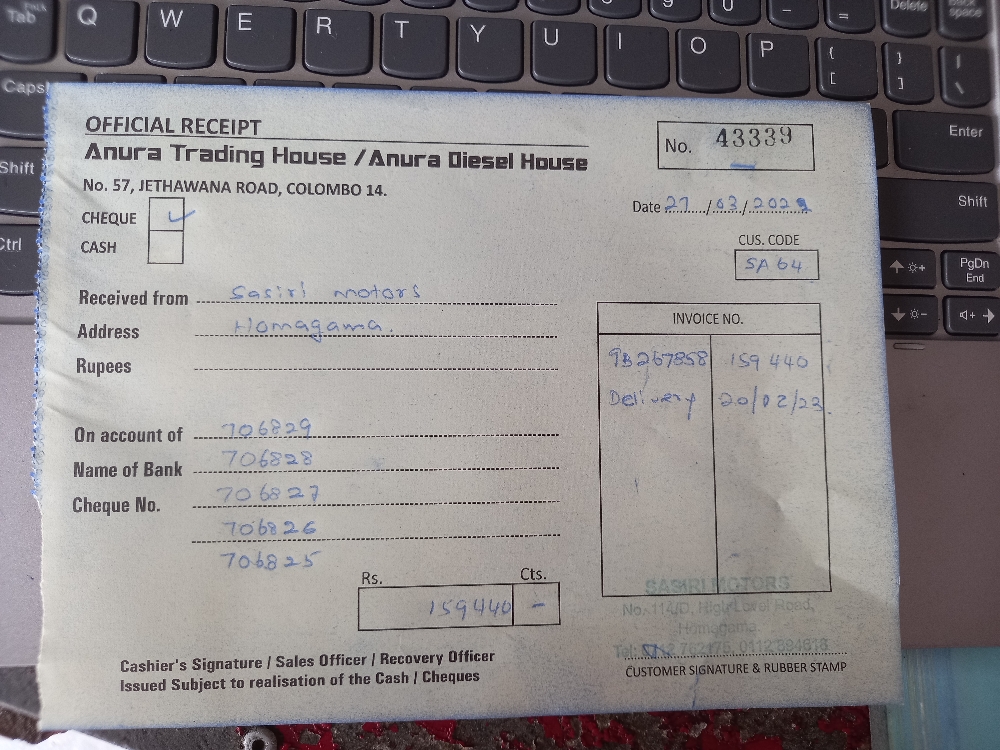 OFFICIAL RECEIPT
No. 43339
Anura Trading House / Anura Diesel House
No. 57, JETHAWANA ROAD, COLOMBO 14.
Date 27/03/2023
CHEQUE ✓
CASH
CUS. CODE
SA 64
Received from Sasiri motors
Address Homagama.
Rupees
INVOICE NO.
9B267858 159 440
Delivery 20/02/23.
On account of 706829
Name of Bank 706828
Cheque No. 706827
706826
706825
Rs. Cts.
159440 -
SASIRI MOTORS
No. 114/D, High Level Road,
Homagama.
Tel:
Cashier's Signature / Sales Officer / Recovery Officer
Issued Subject to realisation of the Cash / Cheques
CUSTOMER SIGNATURE & RUBBER STAMP
Tab Q W E R T Y U I O P { [ } ] | \
Delete
Caps
Enter
Shift
Shift
Ctrl
PgDn
End